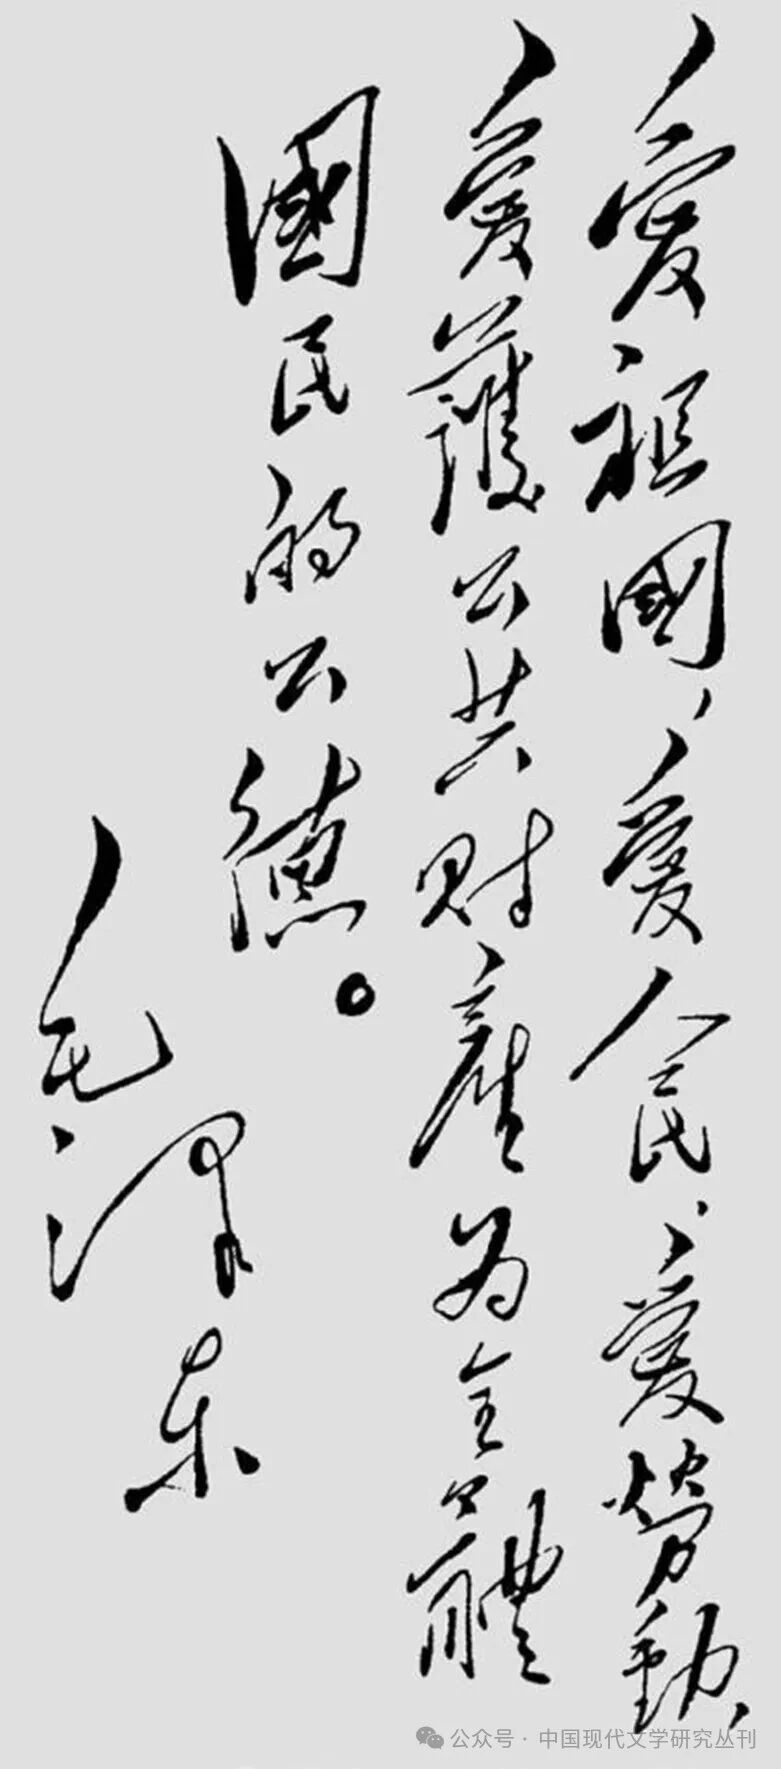 爱祖國、爱人民、爱勞動、
爱護公共财產为全體
國民的公德。
毛泽东
公众号·中国现代文学研究丛刊